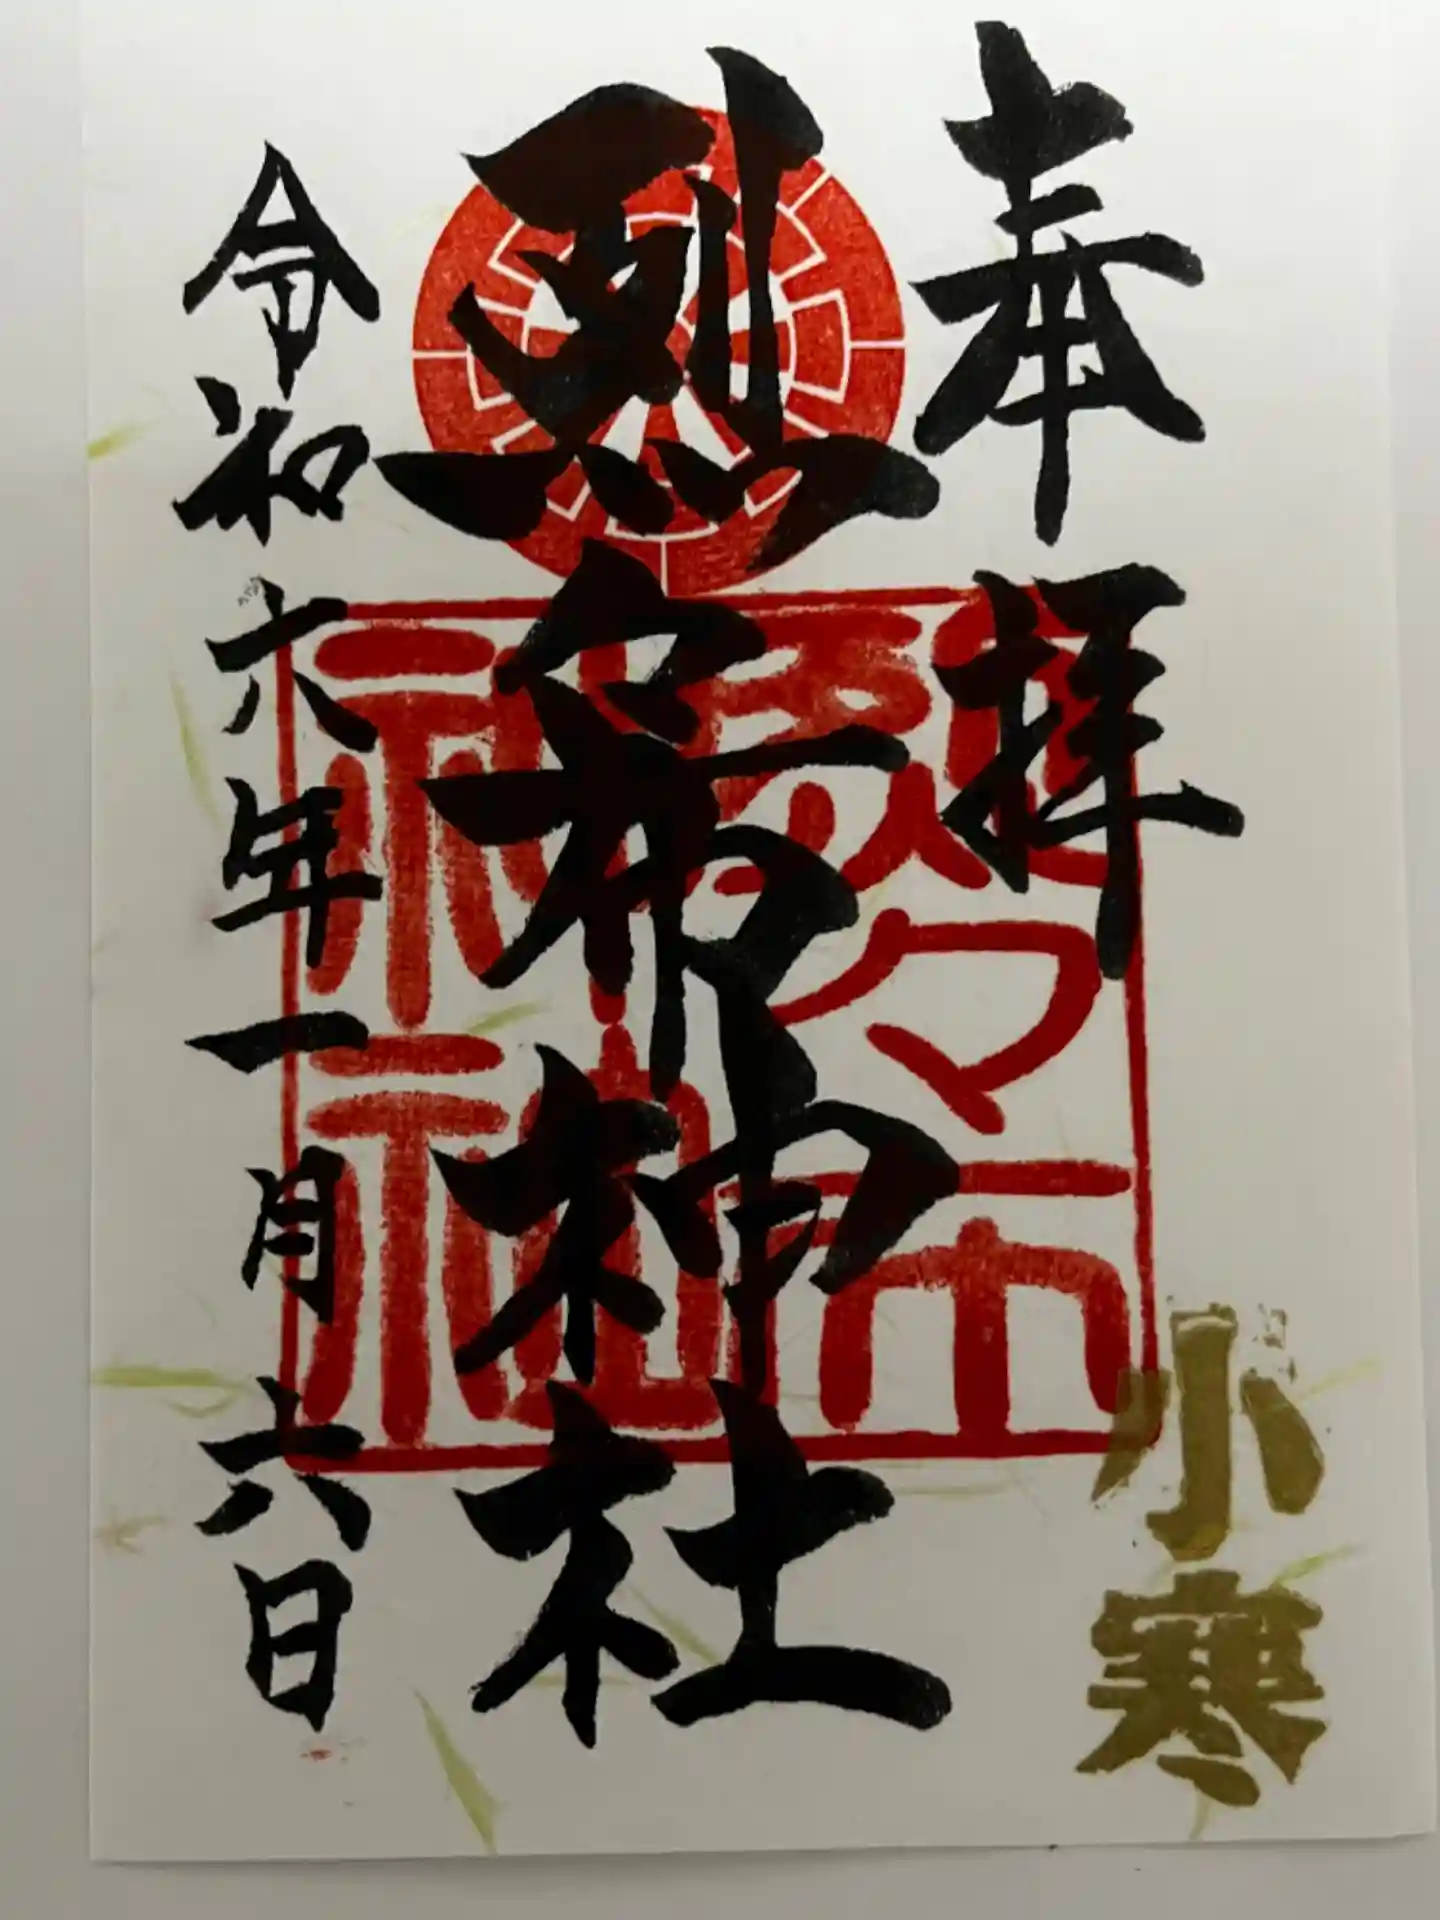 奉拝
小寒
烈々布神社
烈々布
神社
令和六年一月六日